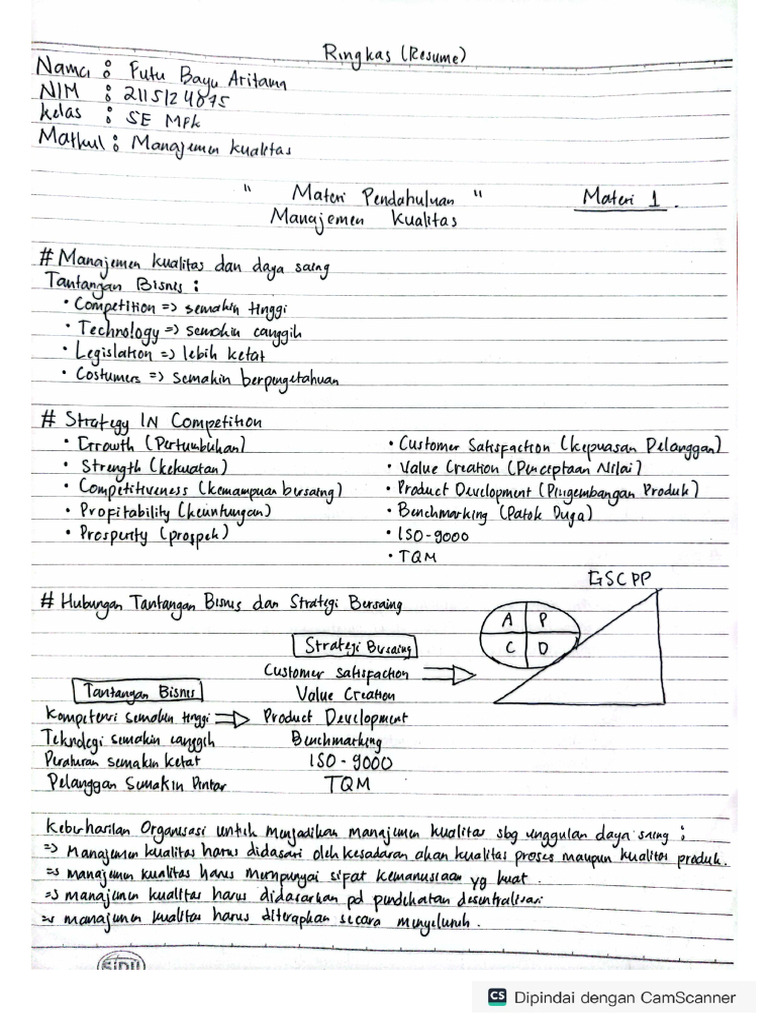 Ringkas (Resume)
Nama : Putu Bayu Aritama
NIM : 2115124875
kelas : 5E MPk
Matkul : Manajemen kualitas
" Materi Pendahuluan " Materi 1.
Manajemen Kualitas
# Manajemen kualitas dan daya saing
Tantangan Bisnis :
• Competition => semakin tinggi
• Technology => semakin canggih
• Legislation => lebih ketat
• Costumers => semakin berpengetahuan
# Strategy IN Competition
• Grrowth (Pertumbuhan) • Customer Satisfaction (kepuasan Pelanggan)
• Strength (kekuatan) • Value Creation (Penciptaan Nilai)
• Competitiveness (kemampuan bersaing) • Product Development (Pengembangan Produk)
• Profitability (keuntungan) • Benchmarking (Patok Duga)
• Prosperity (prospek) • ISO-9000
• TQM
GSCPP
# Hubungan Tantangan Bisnis dan Strategi Bersaing
A P
C D
Strategi Bersaing
Customer satisfaction
Tantangan Bisnis Value Creation
Kompetensi semakin tinggi => Product Development
Teknologi semakin canggih Benchmarking
Peraturan semakin ketat ISO - 9000
Pelanggan Semakin Pintar TQM
Keberhasilan Organisasi untuk menjadikan manajemen kualitas sbg unggulan daya saing :
=> Manajemen kualitas harus didasari oleh kesadaran akan kualitas proses maupun kualitas produk.
=> manajemen kualitas harus mempunyai sifat kemanusiaan yg kuat
=> manajemen kualitas harus didasarkan pd pendekatan desentralisasi
=> manajemen kualitas harus diterapkan secara menyeluruh.
SIDU
CS Dipindai dengan CamScanner